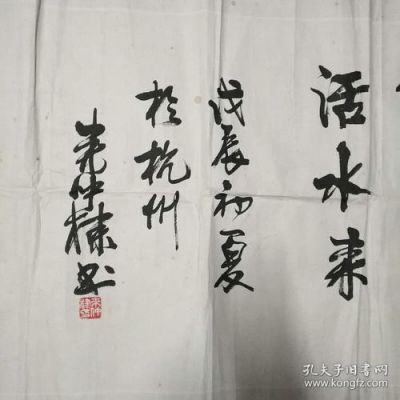 活水来
戊辰初夏
于杭州
朱仲棣书
孔夫子旧书网
www.kongfz.com